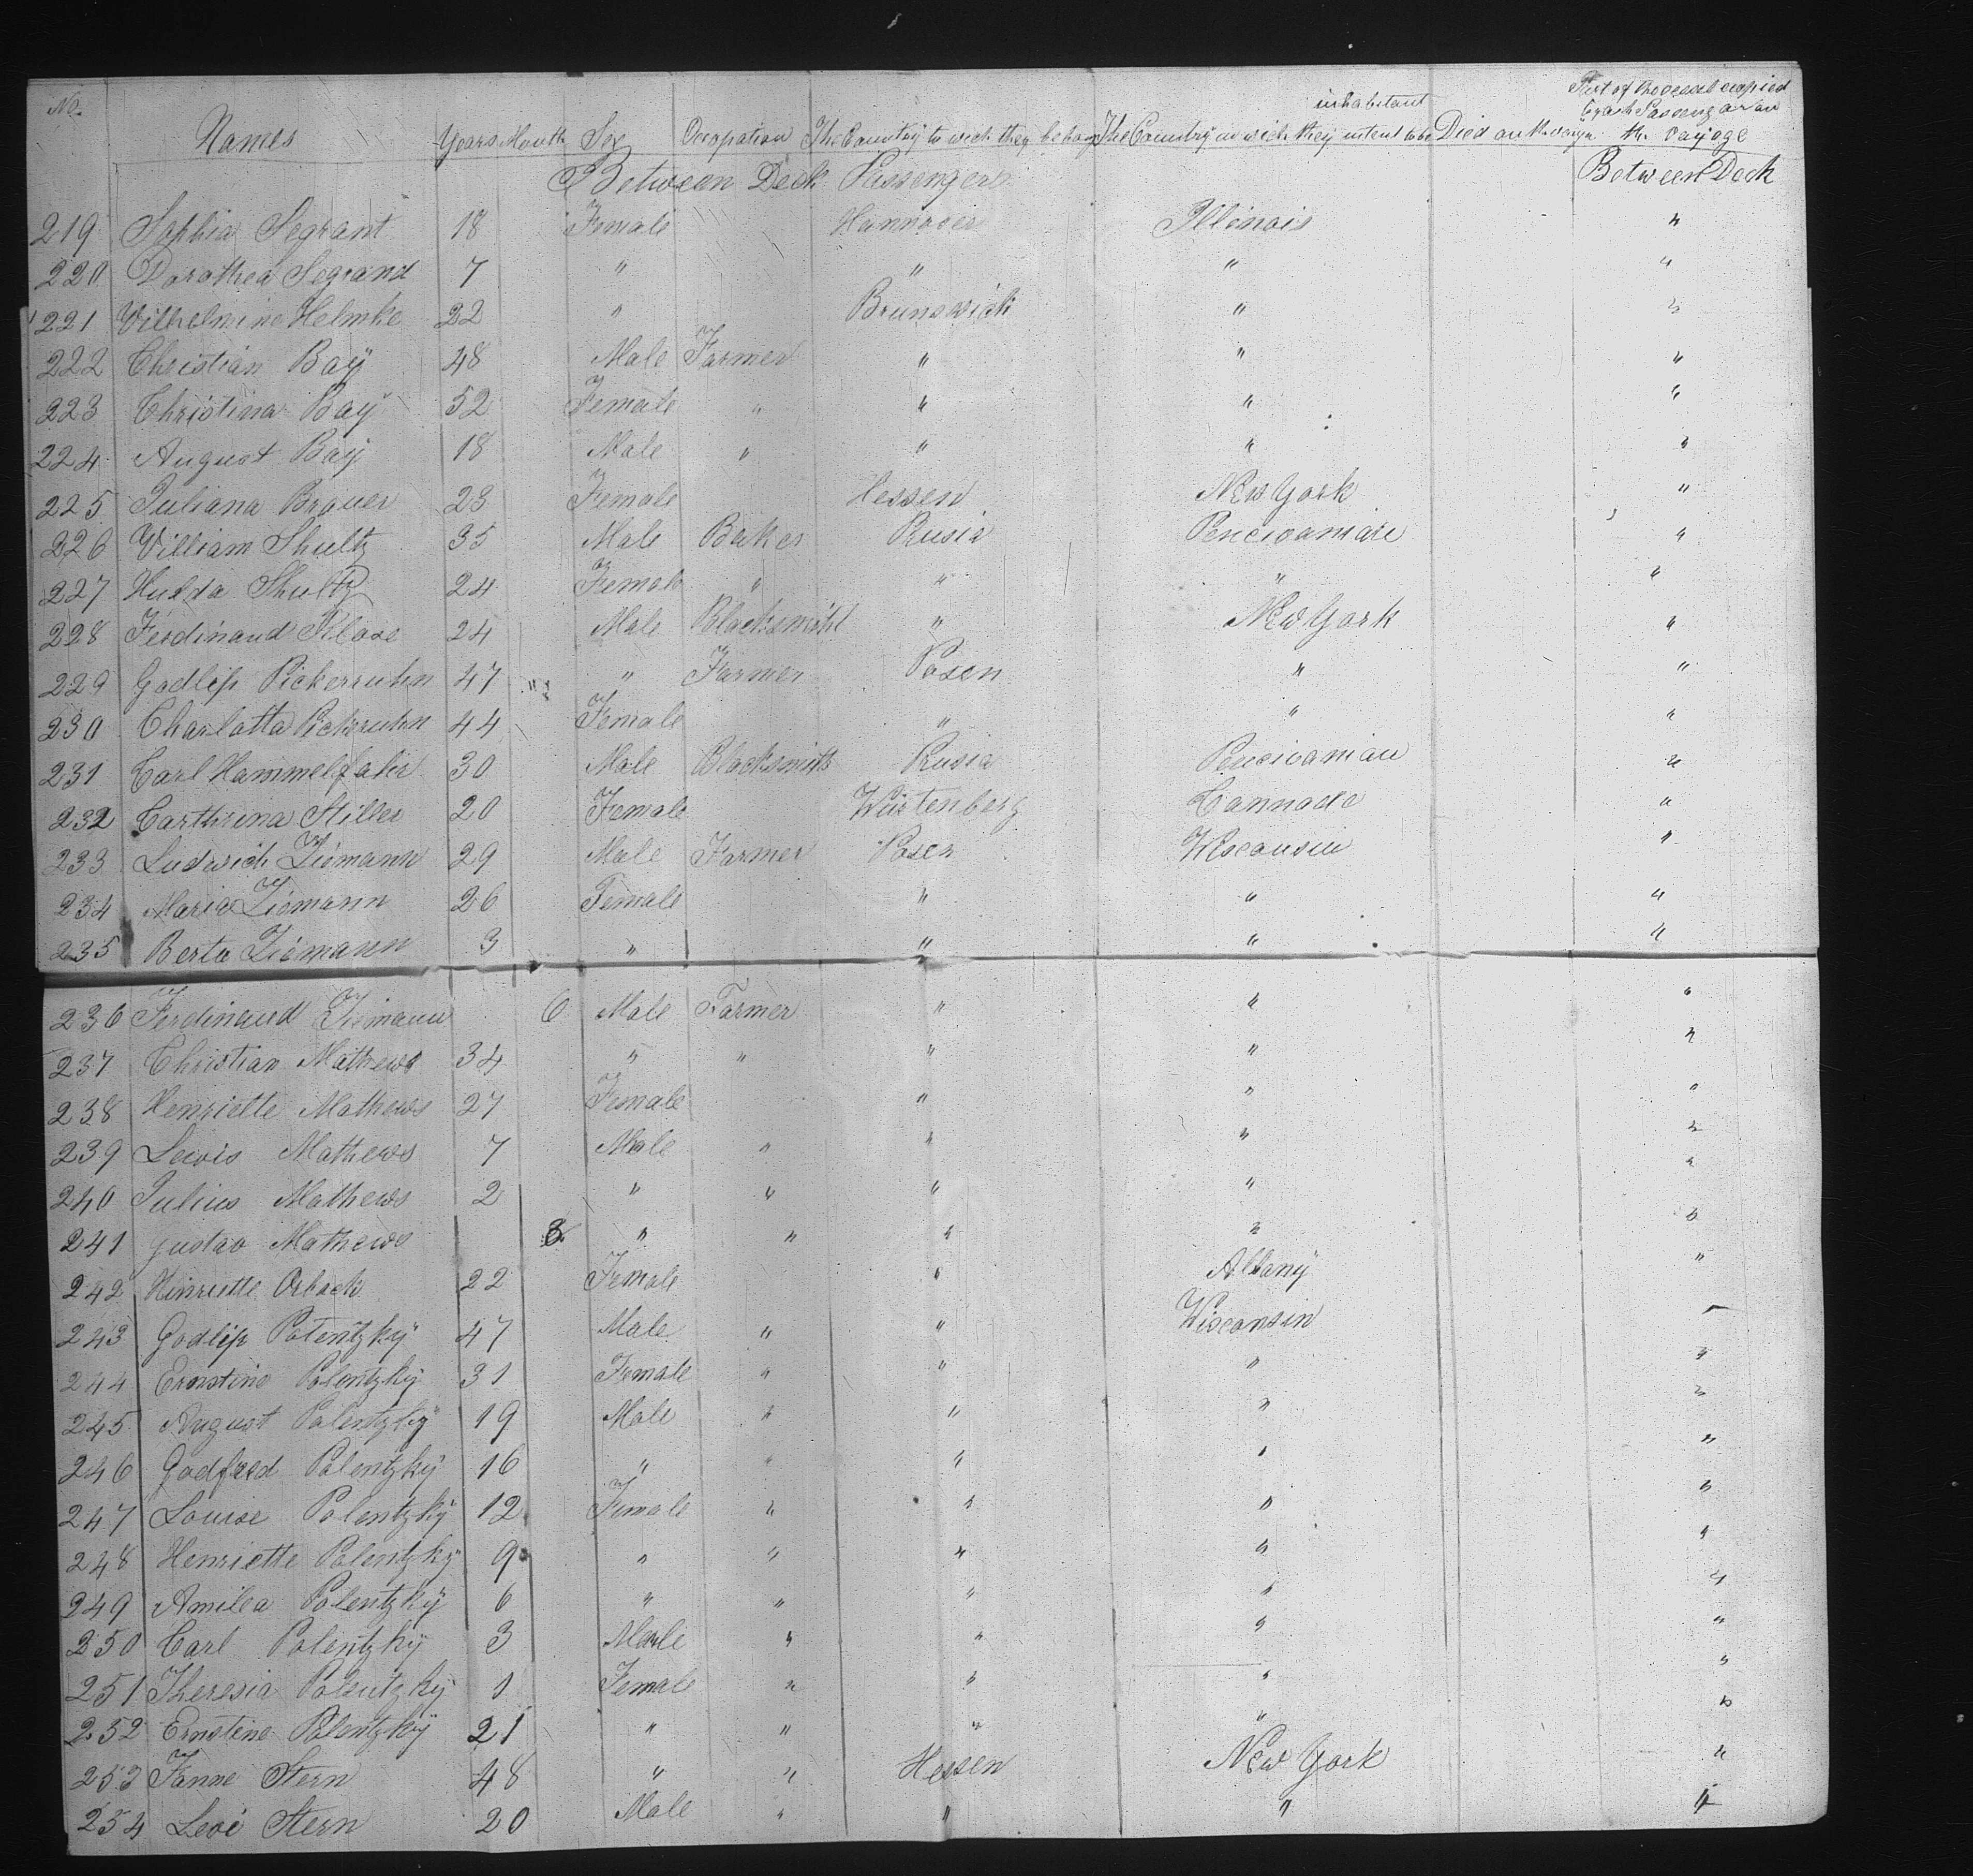 No. Names Years Month Sex Occopation The Country to wich they belong The Country in wich they intent to be inhabitant Died on the voyge Part of the vessel occopied by each Passenger on the vayoge
Between Deck Passengers Between Deck
219 Sophia Segrant 18 Female Hannover Illinois "
220 Dorothea Segrand 7 " " " "
221 Vilhelmine Helmke 22 " Brunswich " "
222 Christian Baÿ 48 Male Farmer " " "
223 Christina Baÿ 52 Female " " " "
224 August Baÿ 18 Male " " " "
225 Juliana Brauer 23 Female Hessen New York "
226 Villiam Shultz 35 Male Baker Rusia "
227 Hulda Shultz 24 Female " " " "
228 Ferdinand Klose 24 Male Blacksmiht " New York "
229 Godlip Pickerruhn 47 " Farmer Posen " "
230 Charlotta Pickruhn 44 Female " " "
231 Carl Hammelfahr 30 Male Blacksmith Rusia "
232 Carthrina Stiller 20 Female Würtenberg Cannada "
233 Ludwich Ziemann 29 Male Farmer Posen Wisconsin "
234 Maria Ziemann 26 Female " " "
235 Berta Ziemann 3 " " " "
236 Ferdinand Ziemann 6 Male Farmer " " "
237 Christian Mathews 34 " " " " "
238 Henriette Mathews 27 Female " " "
239 Lewis Mathews 7 Male " " " "
240 Julius Mathews 2 " " " " "
241 Gustav Mathews 3 " " " " "
242 Hinriette Orback 22 Female " Albanÿ "
243 Godlip Polentzkÿ 47 Male " " Wisconsin
244 Ernstine Polentzkÿ 31 Female " " " "
245 August Polentzkÿ 19 Male " " " "
246 Godfred Polentzkÿ 16 " " " " "
247 Louise Polentzkÿ 12 Female " " " "
248 Henriette Polentzkÿ 9 " " " " "
249 Amilea Polentzkÿ 6 " " " " "
250 Carl Polentzkÿ 3 Male " " " "
251 Theresia Polentzkÿ 1 Female " " " "
252 Ernstine Polentzkÿ 21 " " " " "
253 Fanne Stern 48 " " Hessen New York "
254 Levi Stern 20 Male " " " "